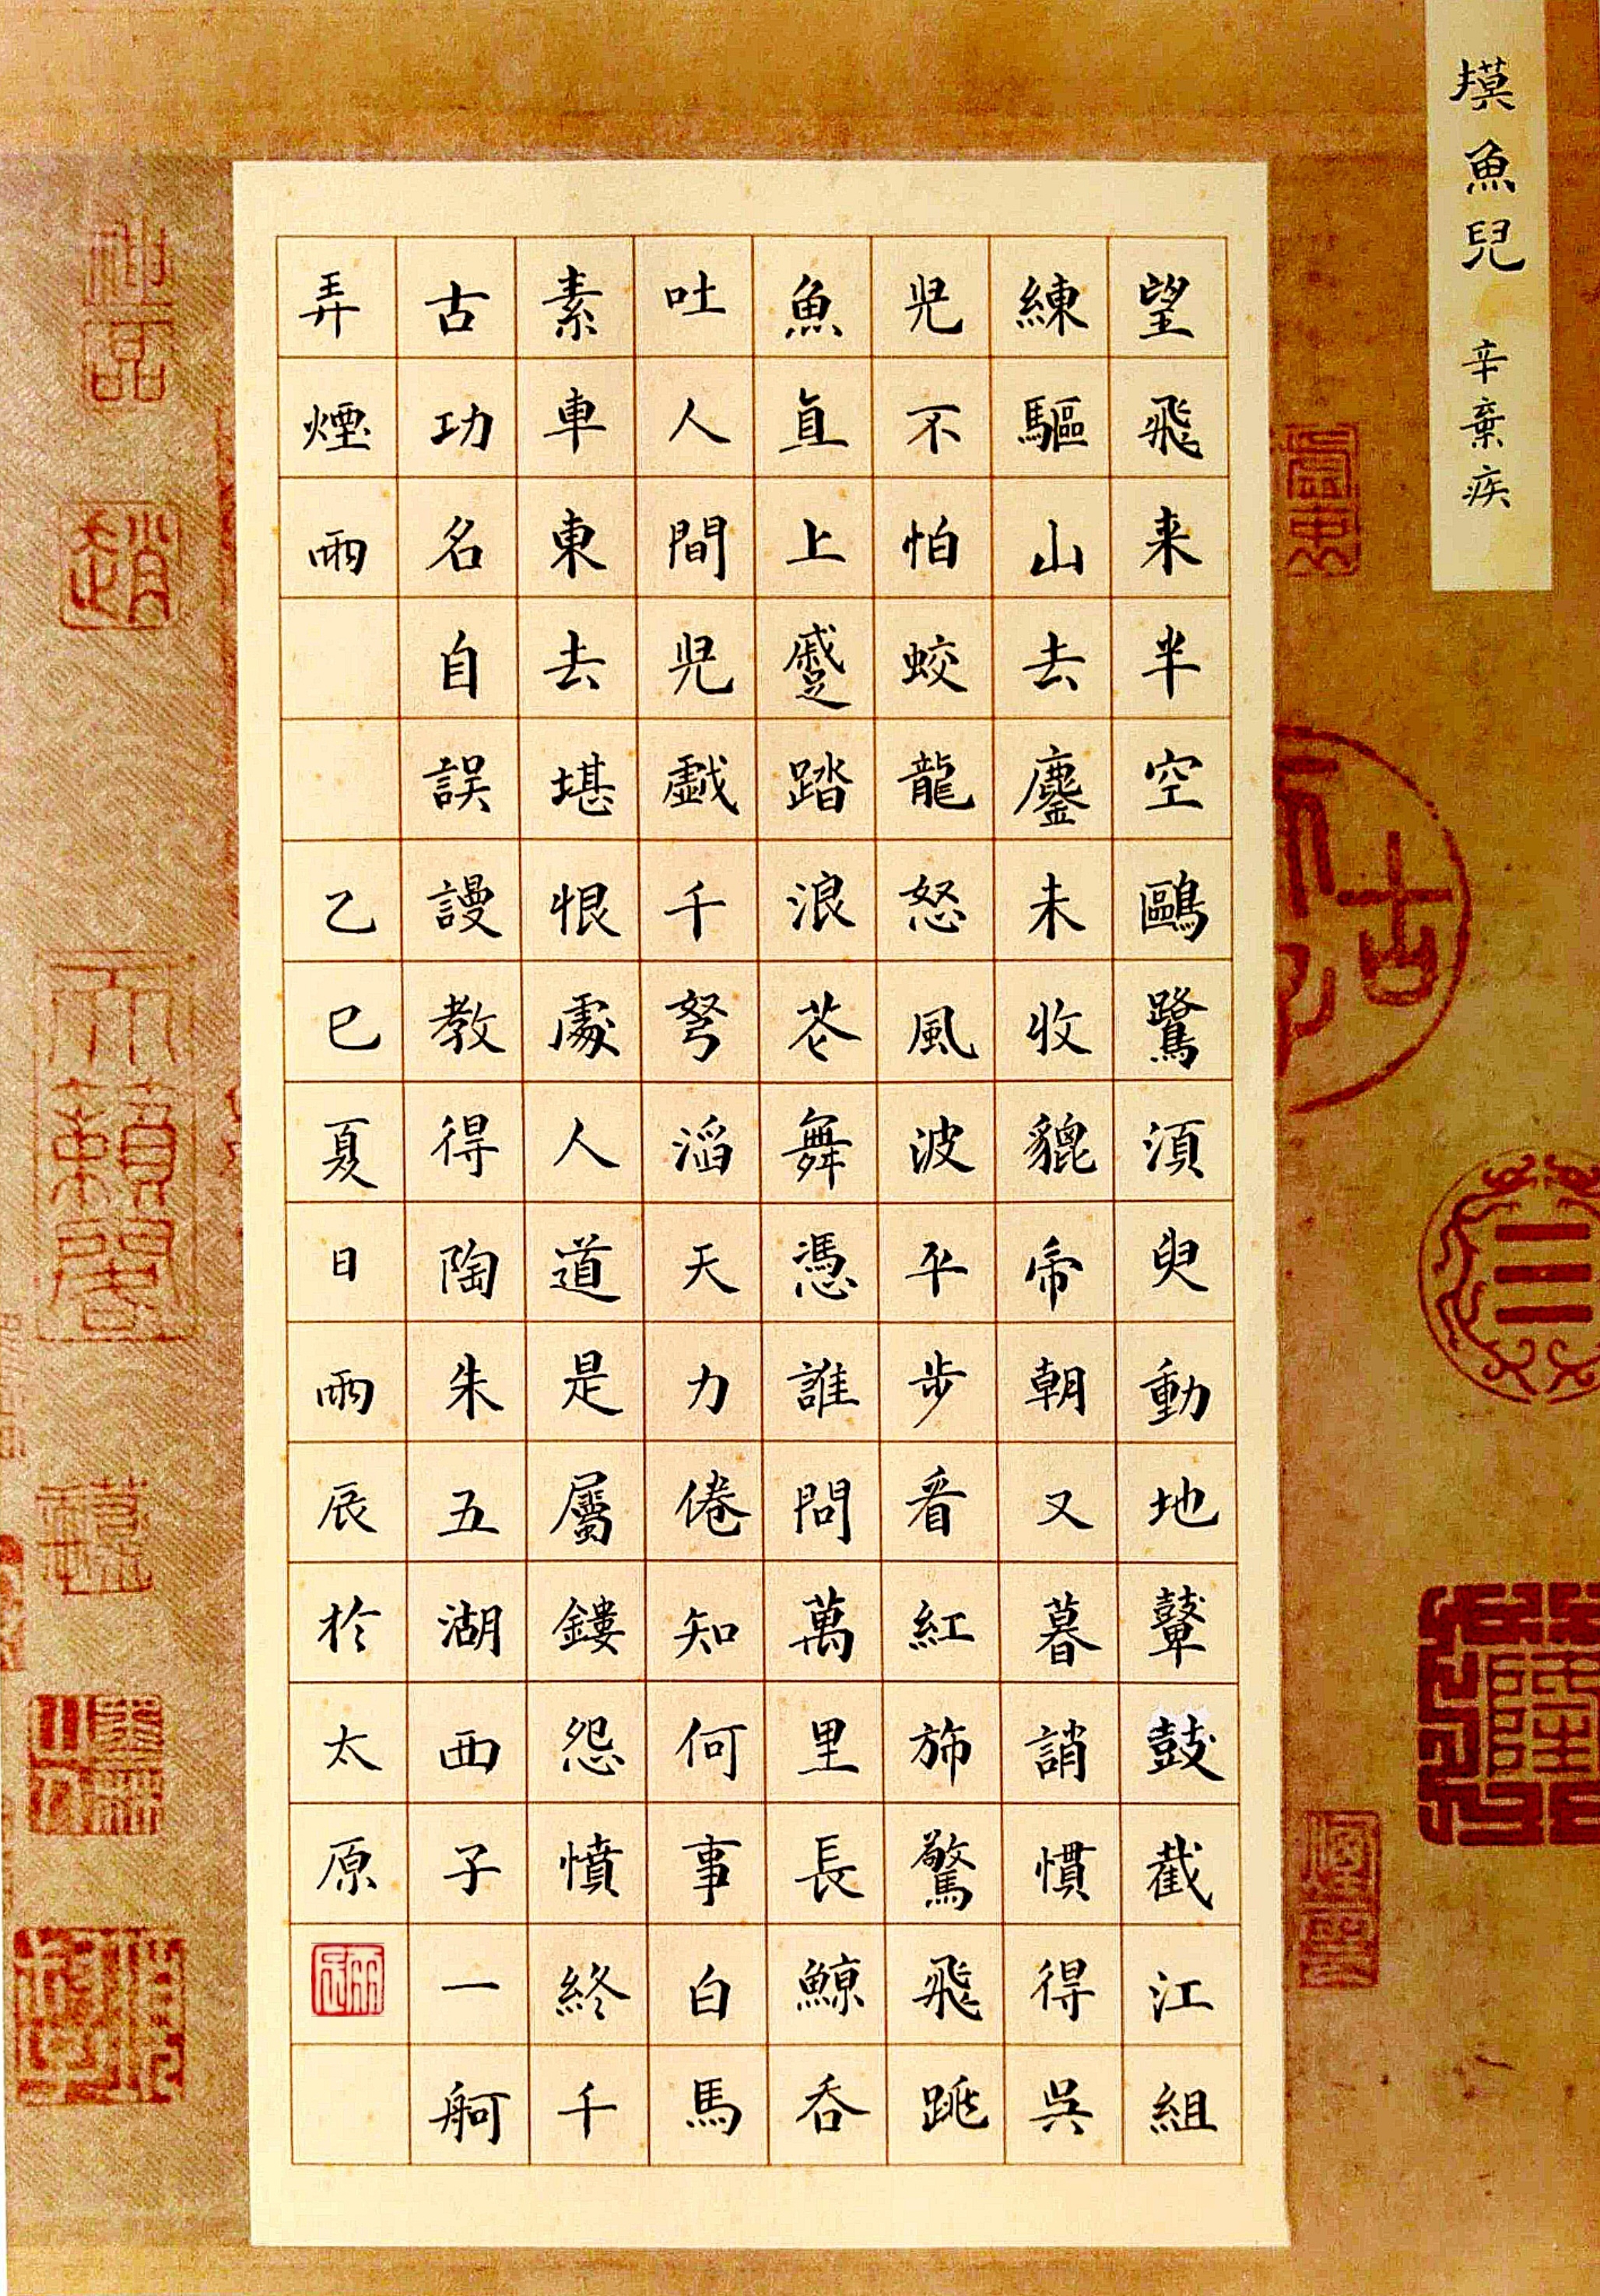 摸魚兒 辛棄疾
望飛来半空鷗鷺須臾動地鼙鼓截江組
練驅山去鏖未收貔帝朝又暮誚慣得吳
兒不怕蛟龍怒風波平步看紅旆驚飛跳
魚直上蹙踏浪花舞憑誰問萬里長鯨吞
吐人間兒戲千弩滔天力倦知何事白馬
素車東去堪恨處人道是屬鏤怨憤終千
古功名自誤謾教得陶朱五湖西子一舸
弄煙雨
乙巳夏日雨辰於太原